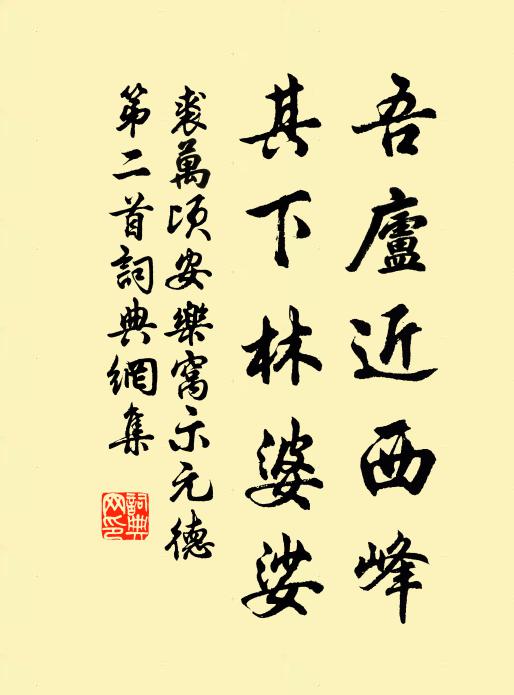 吾廬近西峰
其下林婆娑
裘萬頃安樂窩示元德
第二首詞典網集
詞典
网印